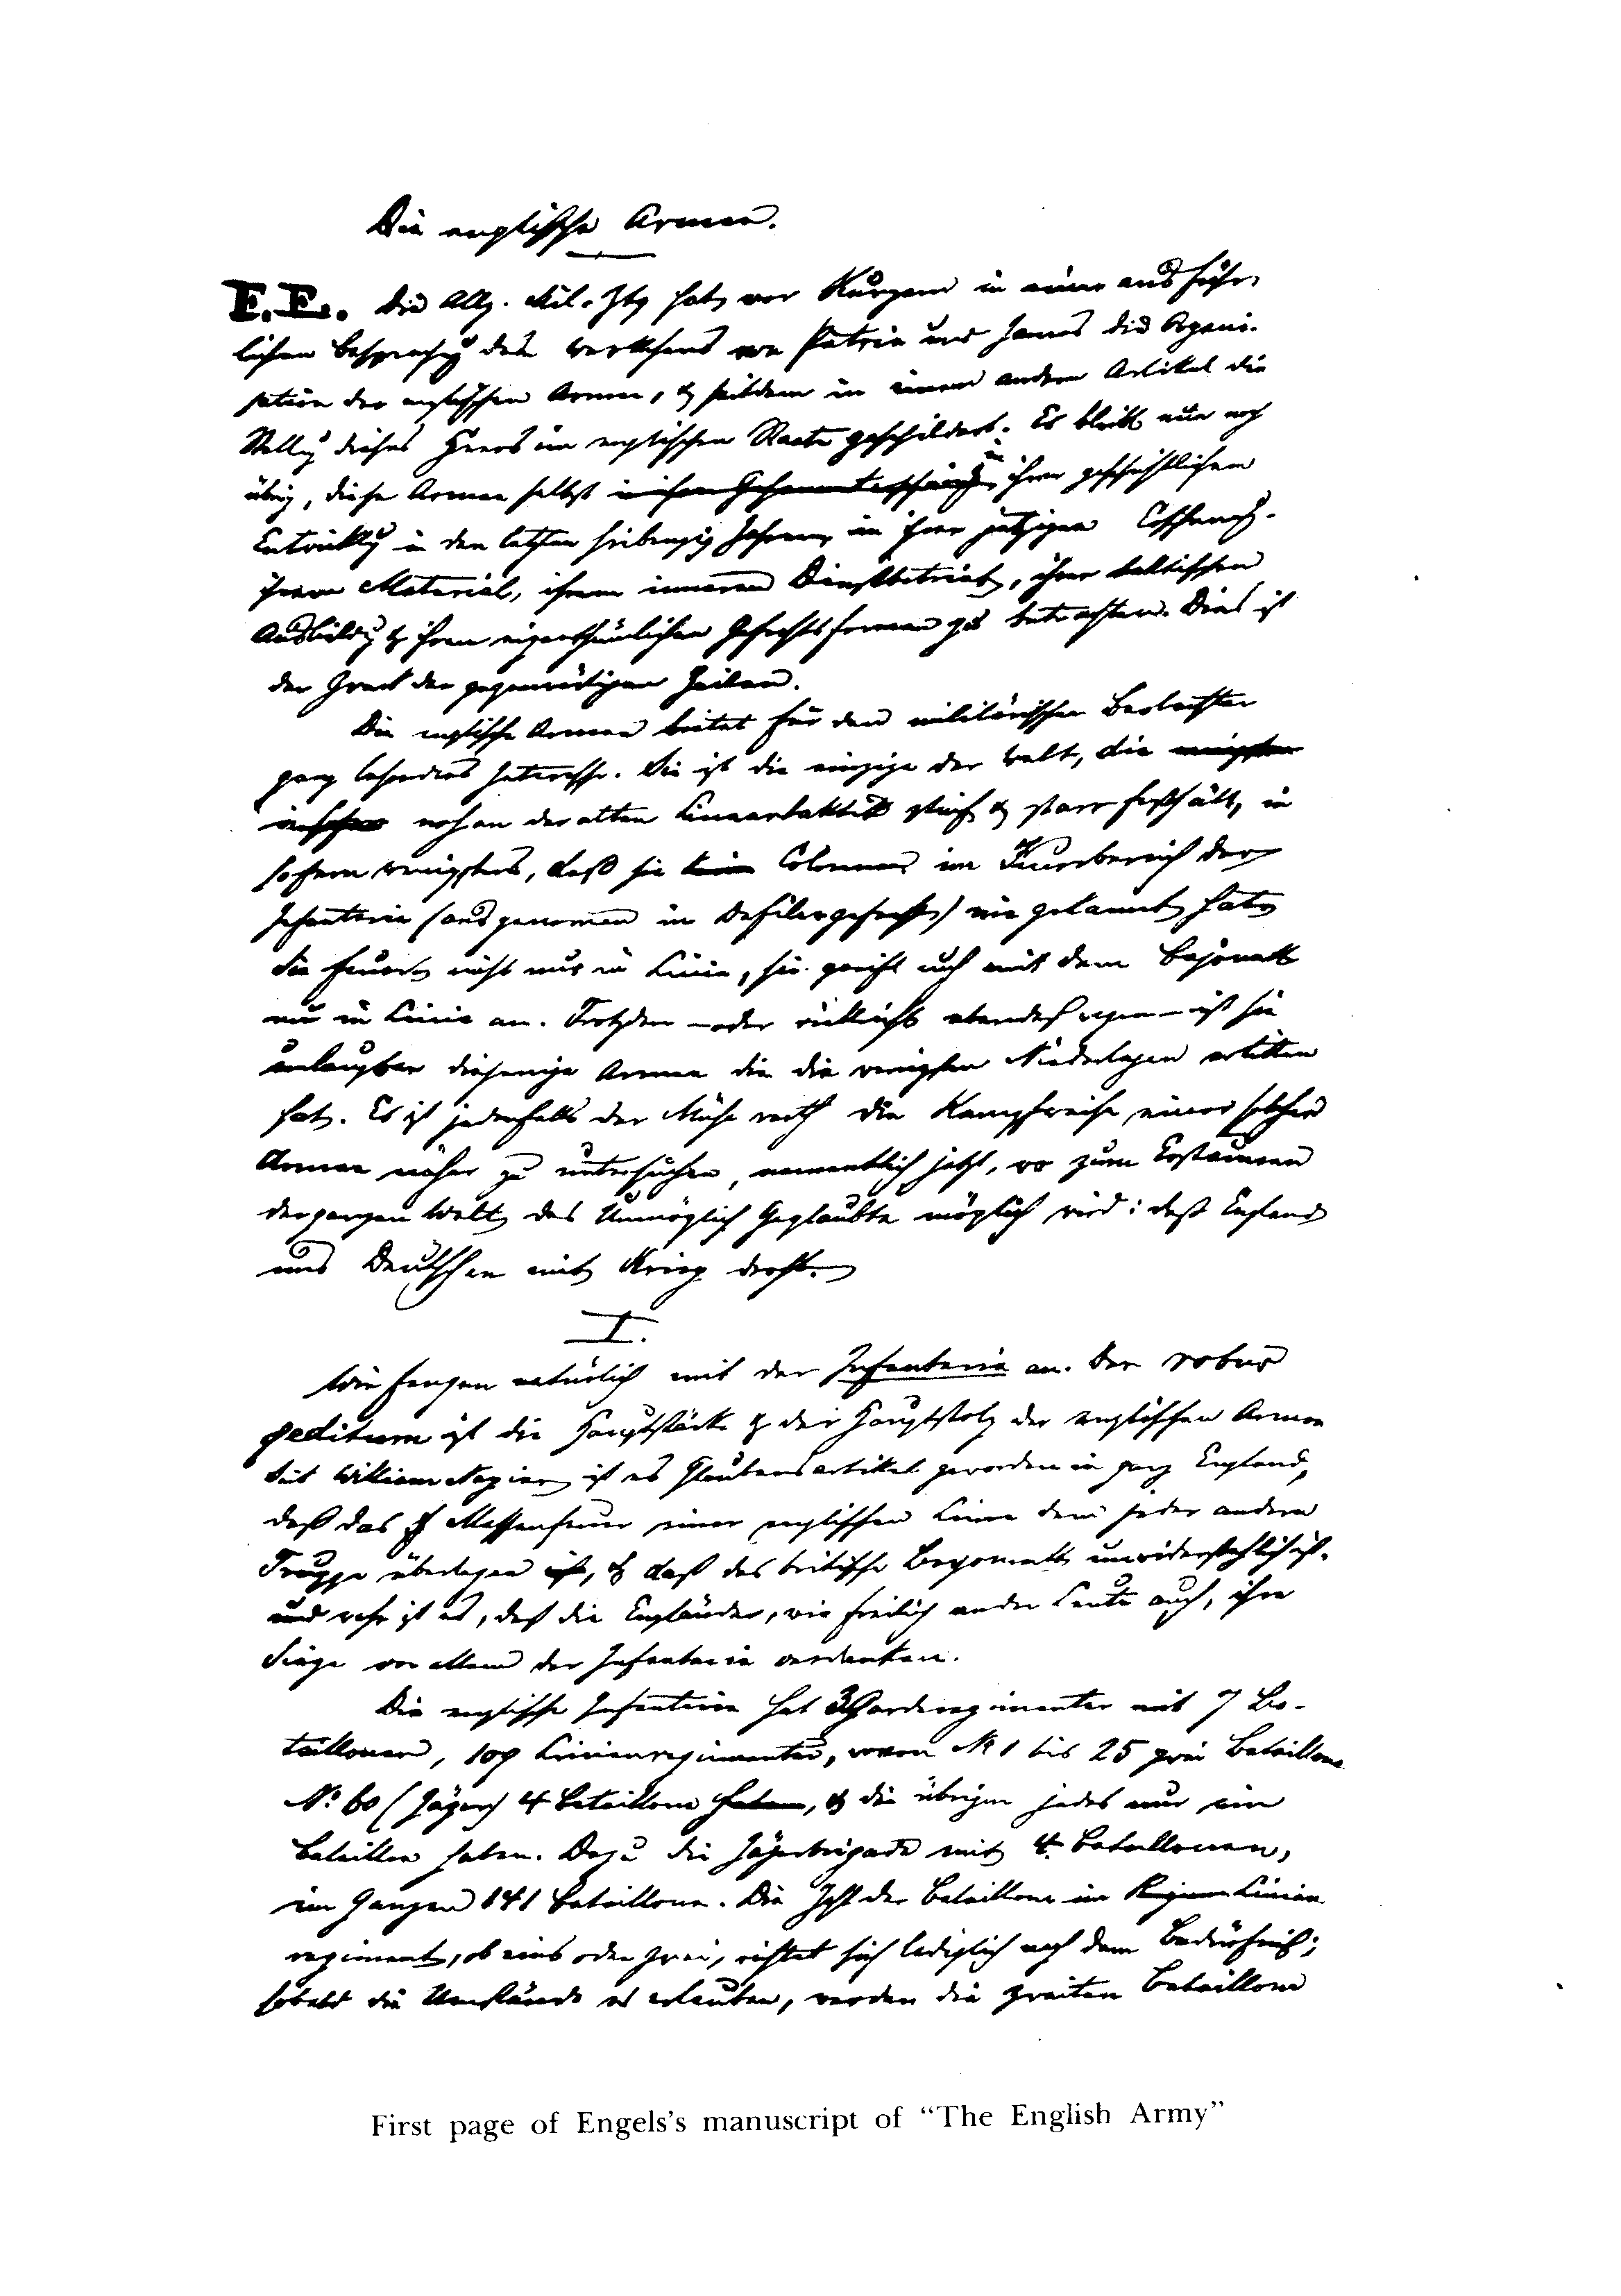 Die englische Armee.
F.E. Die Allg. Mil. Ztg hat vor Kurzem in einer ausführ-
lichen Besprechg des Werkchens von Petrie und James die Organi-
sation der englischen Armee, & seitdem in einem andern Artikel die
Stellg dieses Heers im englischen Staate geschildert. Es bleibt nun noch
übrig, diese Armee selbst in ihrer geschichtlichen
Entwicklg in den letzten siebenzig Jahren, in ihrer jetzigen
ihrem Material, ihrem inneren Dienstbetrieb, ihrer taktischen
Ausbildg & ihren eigenthümlichen Gefechtsformen zu betrachten. Dies ist
der Zweck der gegenwärtigen Zeilen.
Die englische Armee bietet für den militärischen Beobachter
ganz besondres Interesse. Sie ist die einzige der Welt, die
noch an der alten Lineartaktik steif & starr festhält, in
sofern wenigstens, daß sie Colonnen im Feuerbereich der
Infanterie (ausgenommen in Defileegefechten) nie gekannt hat.
Sie feuert nicht nur in Linie, sie greift auch mit dem Bajonett
nur in Linie an. Trotzdem – oder vielleicht ebendeßwegen – ist sie
unleugbar diejenige Armee die die wenigsten Niederlagen erlitten
hat. Es ist jedenfalls der Mühe werth die Kampfweise einer solchen
Armee näher zu untersuchen, namentlich jetzt, wo zum Erstaunen
der ganzen Welt das Unmöglich Geglaubte möglich wird: daß England
uns Deutschen mit Krieg droht.
I.
Wir fangen natürlich mit der Infanterie an. Der robur
peditum ist die Hauptstärke & der Hauptstolz der englischen Armee
Seit William Napier ist es Glaubensartikel geworden in ganz England,
daß das Massenfeuer einer englischen Linie dem jeder andern
Truppe überlegen ist, & daß das britische Bayonnett unwiderstehlich ist.
und wahr ist es, daß die Engländer, wie freilich andre Leute auch, ihre
Siege vor Allem der Infanterie verdanken.
Die englische Infanterie hat 3 Garderegimenter mit 7 Ba-
taillonen, 109 Linienregimenter, wovon No 1 bis 25 zwei Bataillone
No. 60 (Jäger) 4 Bataillone haben, & die übrigen jedes nur ein
Bataillon haben. Dazu die Jägerbrigade mit 4 Bataillonen,
im Ganzen 141 Bataillone. Die Zahl der Bataillone im Linien
regiment, ob eins oder zwei, richtet sich lediglich nach dem Bedürfniß;
sobald die Umstände es erlauben, werden die zweiten Bataillone
First page of Engels's manuscript of “The English Army”